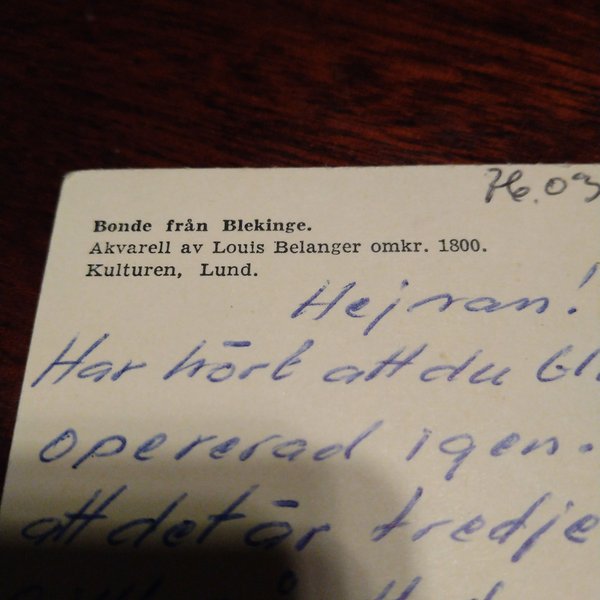 Bonde från Blekinge.
Akvarell av Louis Belanger omkr. 1800.
Kulturen, Lund.
Hejsan!
Har hört att du bli
opererad igen.
att det är tredje